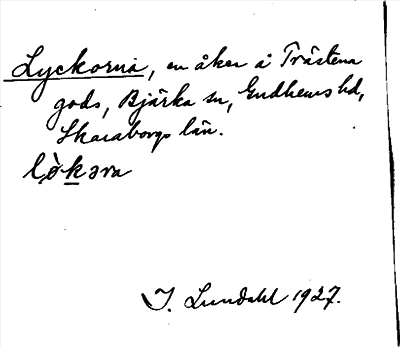 Lyckorna, en åker å Trästena
gods, Bjärka sn, Gudhems hd,
Skaraborgs län.
lø̀kəra
I. Lundahl 1927.